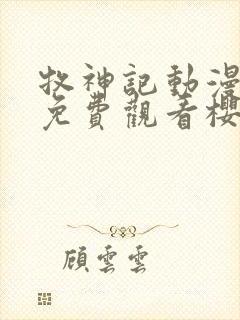 牧神記動漫
免費觀看櫻
顧雲雲